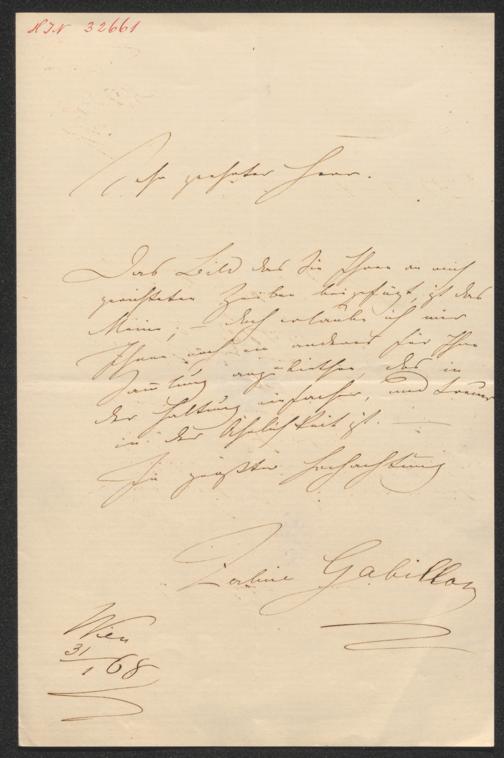 HIN 32661
Sehr geehrter Herr.
Das Bild das Sie Ihren an mich
gerichteten Zeilen beigefügt, ist das
Meine, – doch erlaube ich mir
Ihnen noch ein anderes für Ihre
Sammlung anzubiethen das in
der Haltung einfacher, und treuer
in der Ähnlichkeit ist. —
In größter Hochachtung
Zerline Gabillon
Wien
31/1 68